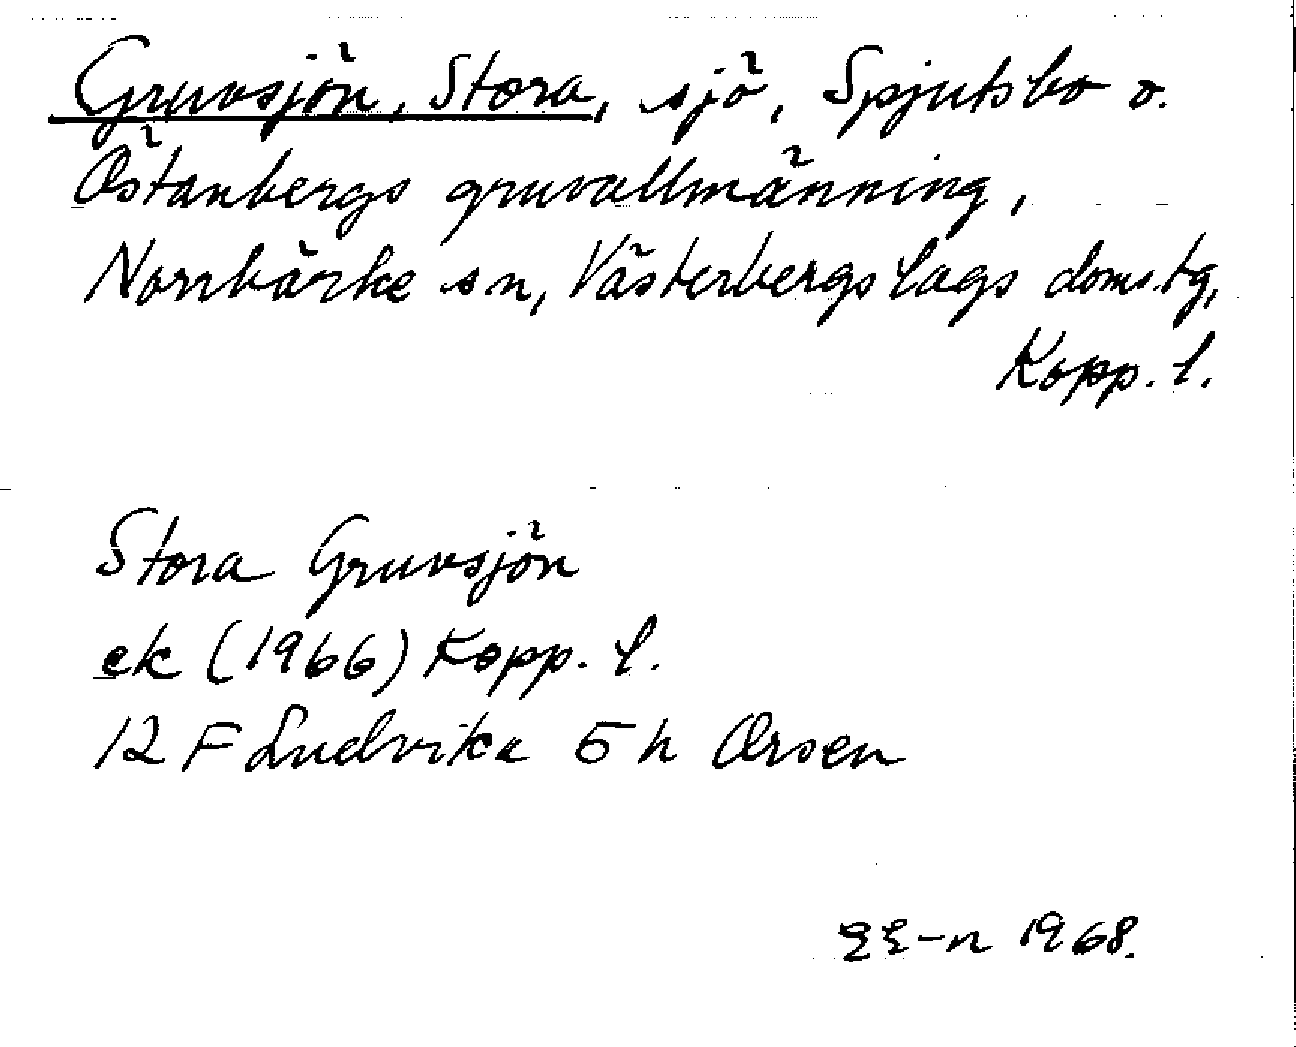 Gruvsjön, Stora, sjö, Spjutsbo o.
Östanbergs gruvallmänning,
Norrbärke sn, Västerbergslags doms.tg,
Kopp. l.
Stora Gruvsjön
ek (1966) Kopp. l.
12 F Ludvika 5 h Orsen
1968.